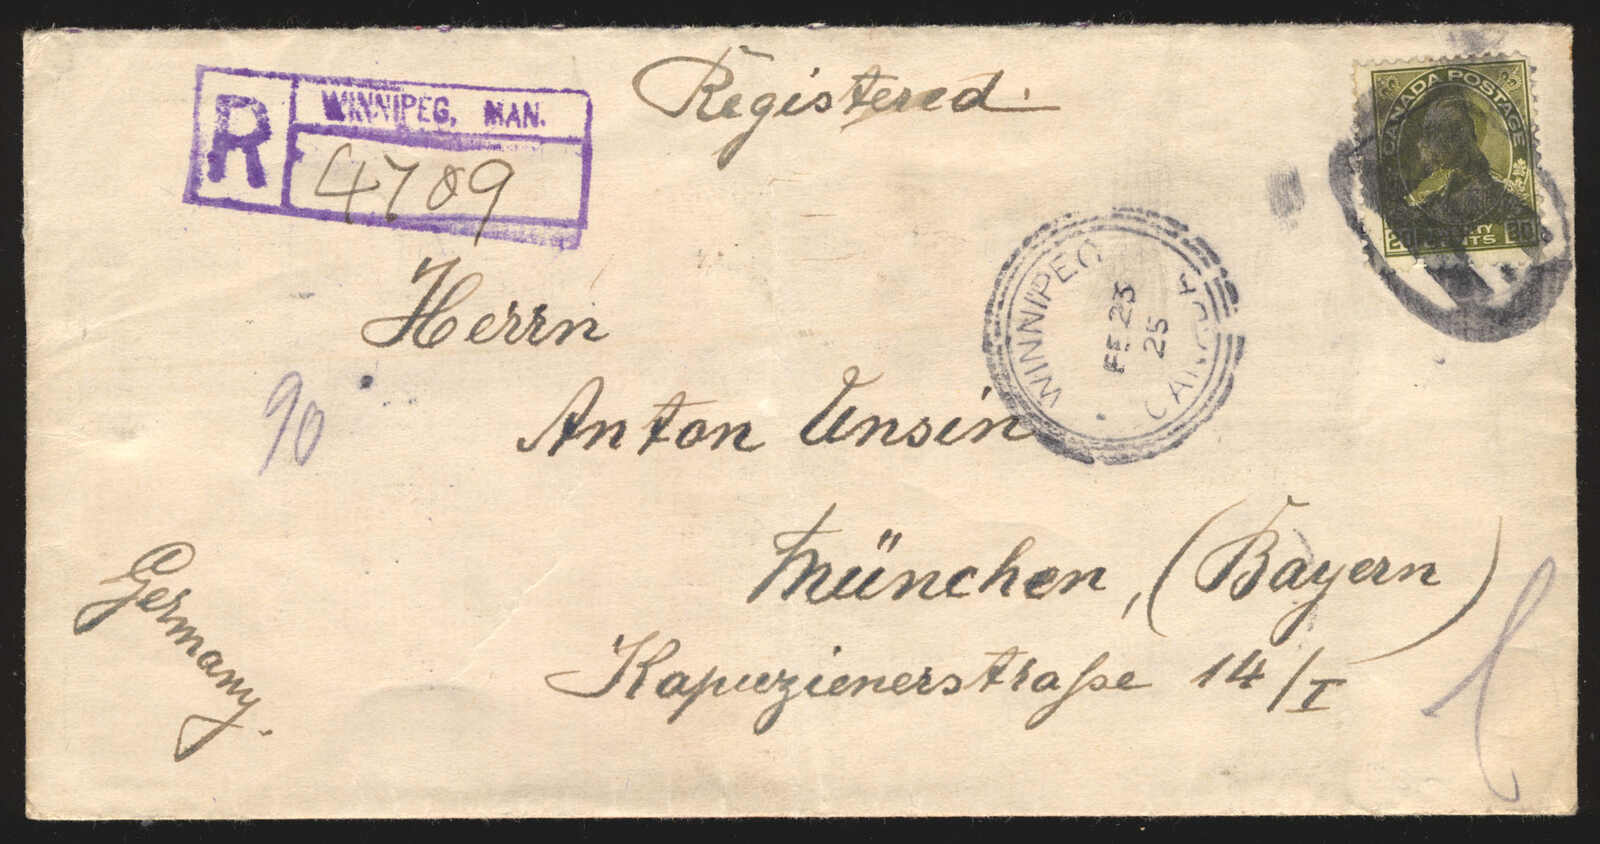 Registered.
R WINNIPEG, MAN.
4709
CANADA POSTAGE
20 CENTS 20
WINNIPEG
FE 23
25
CANADA
Herrn
90
Anton Unsin
München, (Bayern)
Kapuzienerstraße 14/I
Germany.